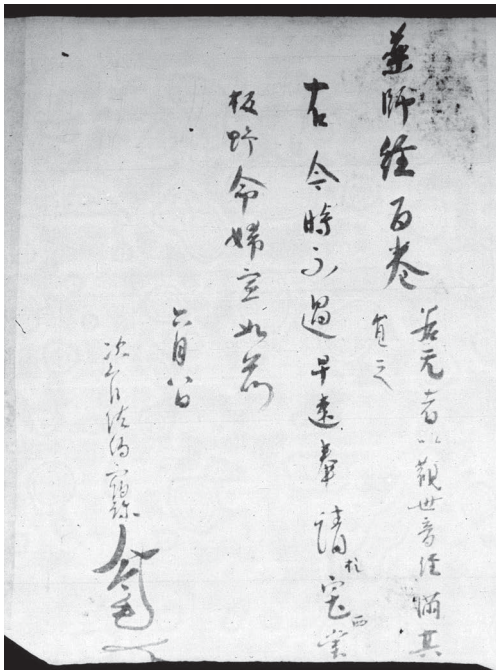 薬師経百巻 若无者以観世音経満其
員之
右今時不過早速奉請於宮西堂
板野命婦宣如前
六月八日
次官佐伯